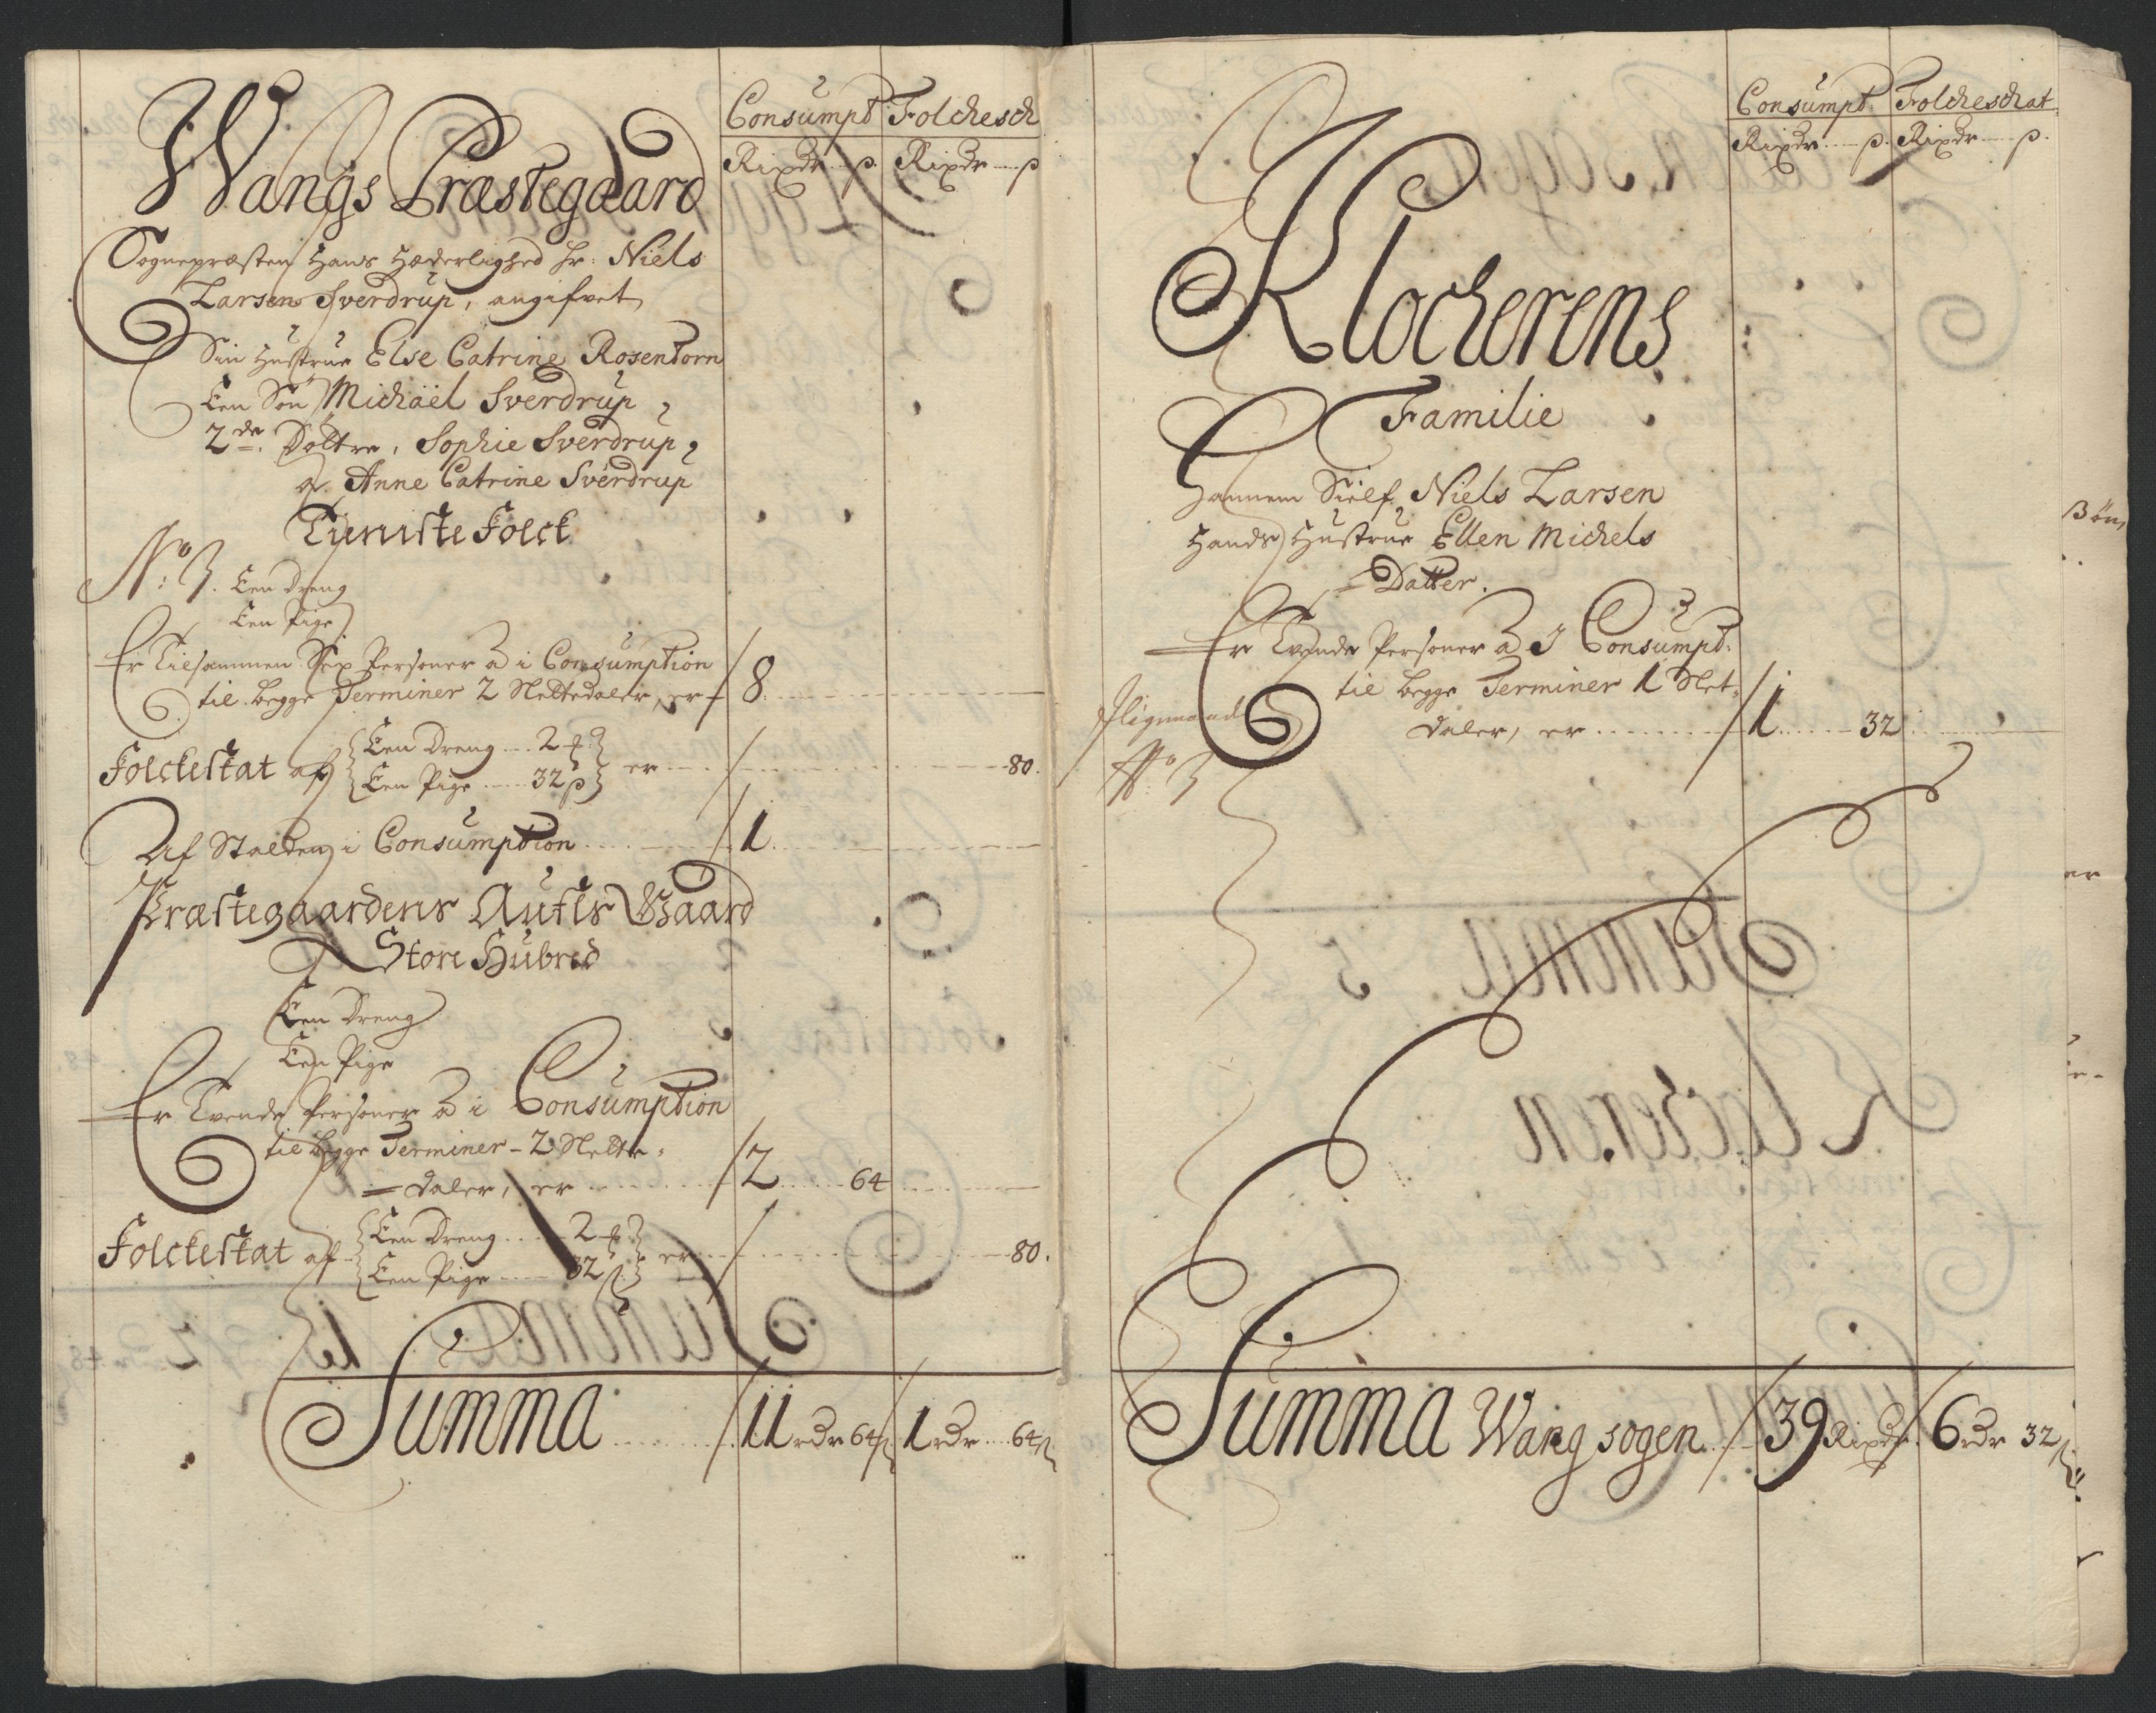 Consumpt Folckesch
Rixdr ß. Rixdr ß
Wangs Præstegaard
Sognepræsten Hans Hæderlighed Hr: Niels
Larsen Sverdrup, angifvet
Sin Hustrue Else Catrine Rosentorn
Een Søn Michäel Sverdrup
2de Døttre, Sophie Sverdrup
og Anne Catrine Sverdrup
Tieniste Folck
No 3. Een Dreng
Een Pige
Er Tilsammen Sex Personer à i Consumption
til begge Terminer 2 Slettedaler, er 8
Folckeskat af Een Dreng 2 Een Pige 32 ß er 80.
Af Stalden i Consumption 1
Præstegaardens Aufls Gaard
Store Hubred
Een Dreng
Een Pige
Er Tvende Personer à i Consumption
til begge Terminer - 2 Slette-
daler, er 2 64
Folckeskat af Een Dreng 2 Een Pige 32 ß er 80.
Summa 11 rdr 64 ß 1 rdr 64 ß
Consumpt: Folckeschat
Rixdr ß. Rixdr ß.
Klockerens
Familie
Hannem Sielf Niels Larsen
Hands Hustrue Ellen Michels
Datter.
Er Tvende Personer à I Consumpt:
til begge Terminer 1 Slet-
daler, er 1 32
No 3
Summa Wang sogen 39 Rixdr 6 rdr 32 ß